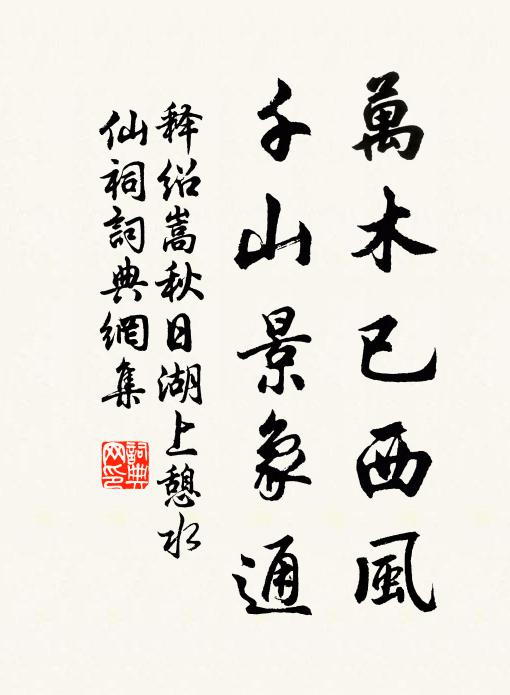 萬木已西風
千山景象通
释绍嵩秋日湖上憩水
仙祠詞典網集
詞典
网印